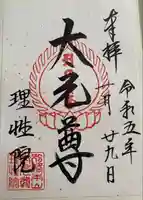 奉拝
令和五年
一月廿九日
大元尊
理性院